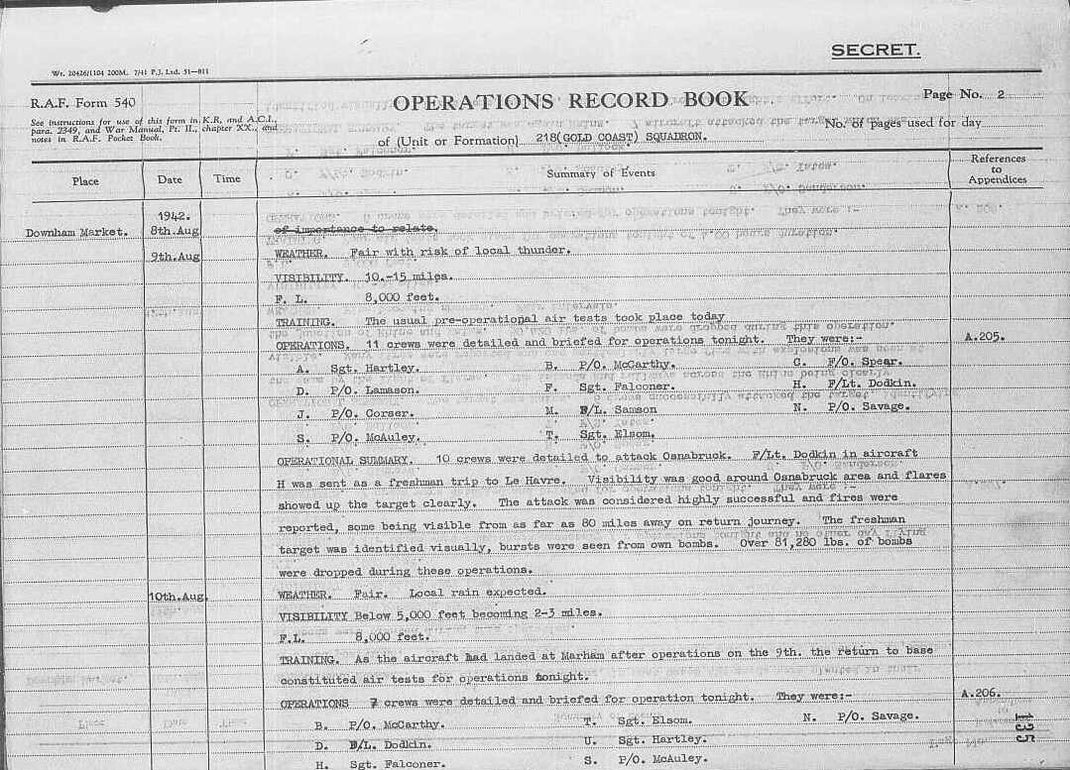 SECRET.
Wt. 20426/1104 200M. 7/41 P.J. Ltd. 51—811
R.A.F. Form 540
OPERATIONS RECORD BOOK
Page No. 2
See instructions for use of this form in K.R. and A.C.I.,
para. 2349, and War Manual, Pt. II., chapter XX., and
notes in R.A.F. Pocket Book.
of (Unit or Formation) 218(GOLD COAST) SQUADRON.
No. of pages used for day
Place Date Time Summary of Events References to Appendices
1942.
Downham Market. 8th.Aug of importance to relate.
9th.Aug WEATHER. Fair with risk of local thunder.
VISIBILITY. 10.-15 miles.
F. L. 8,000 feet.
TRAINING. The usual pre-operational air tests took place today
OPERATIONS. 11 crews were detailed and briefed for operations tonight. They were:- A.205.
A. Sgt. Hartley. B. P/O. McCarthy. C. F/O. Spear.
D. P/O. Lamason. F. Sgt. Falconer. H. F/Lt. Dodkin.
J. P/O. Corser. M. F/L. Samson N. P/O. Savage.
S. P/O. McAuley. T. Sgt. Elsom.
OPERATIONAL SUMMARY. 10 crews were detailed to attack Osnabruck. F/Lt. Dodkin in aircraft
H was sent as a freshman trip to Le Havre. Visibility was good around Osnabruck area and flares
showed up the target clearly. The attack was considered highly successful and fires were
reported, some being visible from as far as 80 miles away on return journey. The freshman
target was identified visually, bursts were seen from own bombs. Over 81,280 lbs. of bombs
were dropped during these operations.
10th.Aug. WEATHER. Fair. Local rain expected.
VISIBILITY Below 5,000 feet becoming 2-3 miles.
F.L. 8,000 feet.
TRAINING. As the aircraft had landed at Marham after operations on the 9th. the return to base
constituted air tests for operations tonight.
OPERATIONS 7 crews were detailed and briefed for operation tonight. They were:- A.206.
B. P/O. McCarthy. T. Sgt. Elsom. N. P/O. Savage.
D. F/L. Dodkin. U. Sgt. Hartley.
H. Sgt. Falconer. S. P/O. McAuley.
135